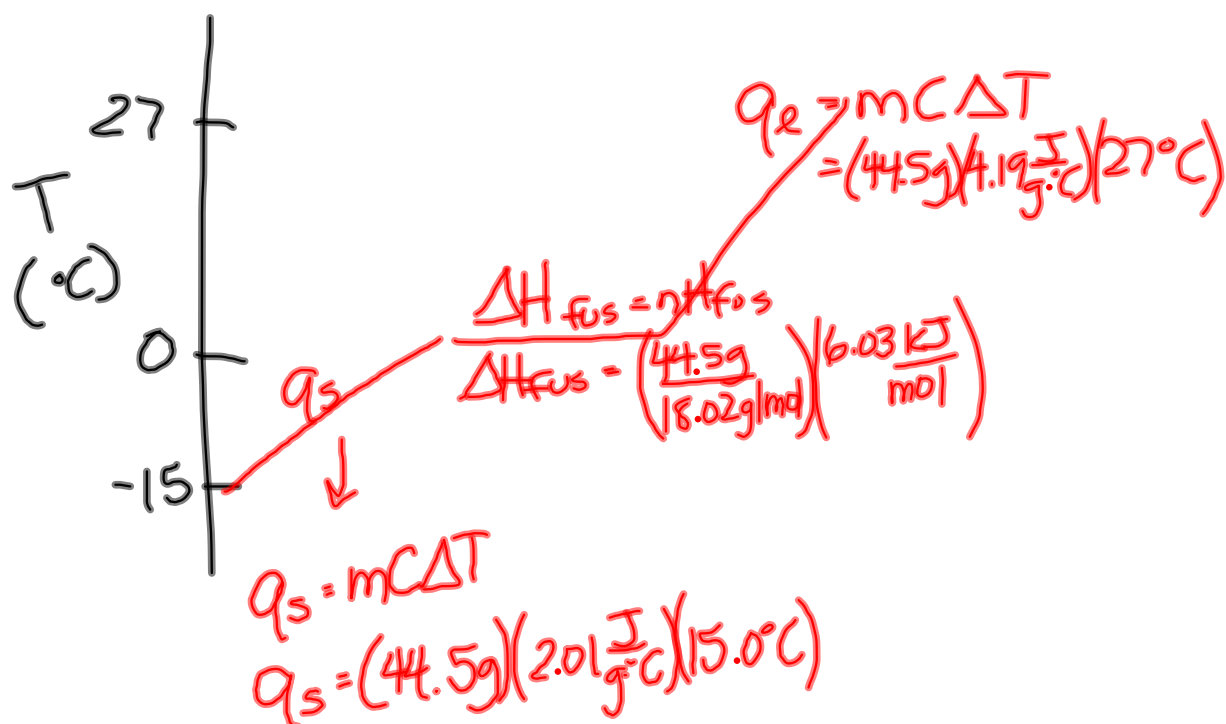 27
T
(°C)
0
-15
qₗ = mCΔT
= (44.5g)(4.19 J/g·°C)(27°C)
ΔH fus = nHfus
ΔHfus = (44.5g/18.02g/mol)(6.03 kJ/mol)
qs
qs = mCΔT
qs = (44.5g)(2.01 J/g·°C)(15.0°C)